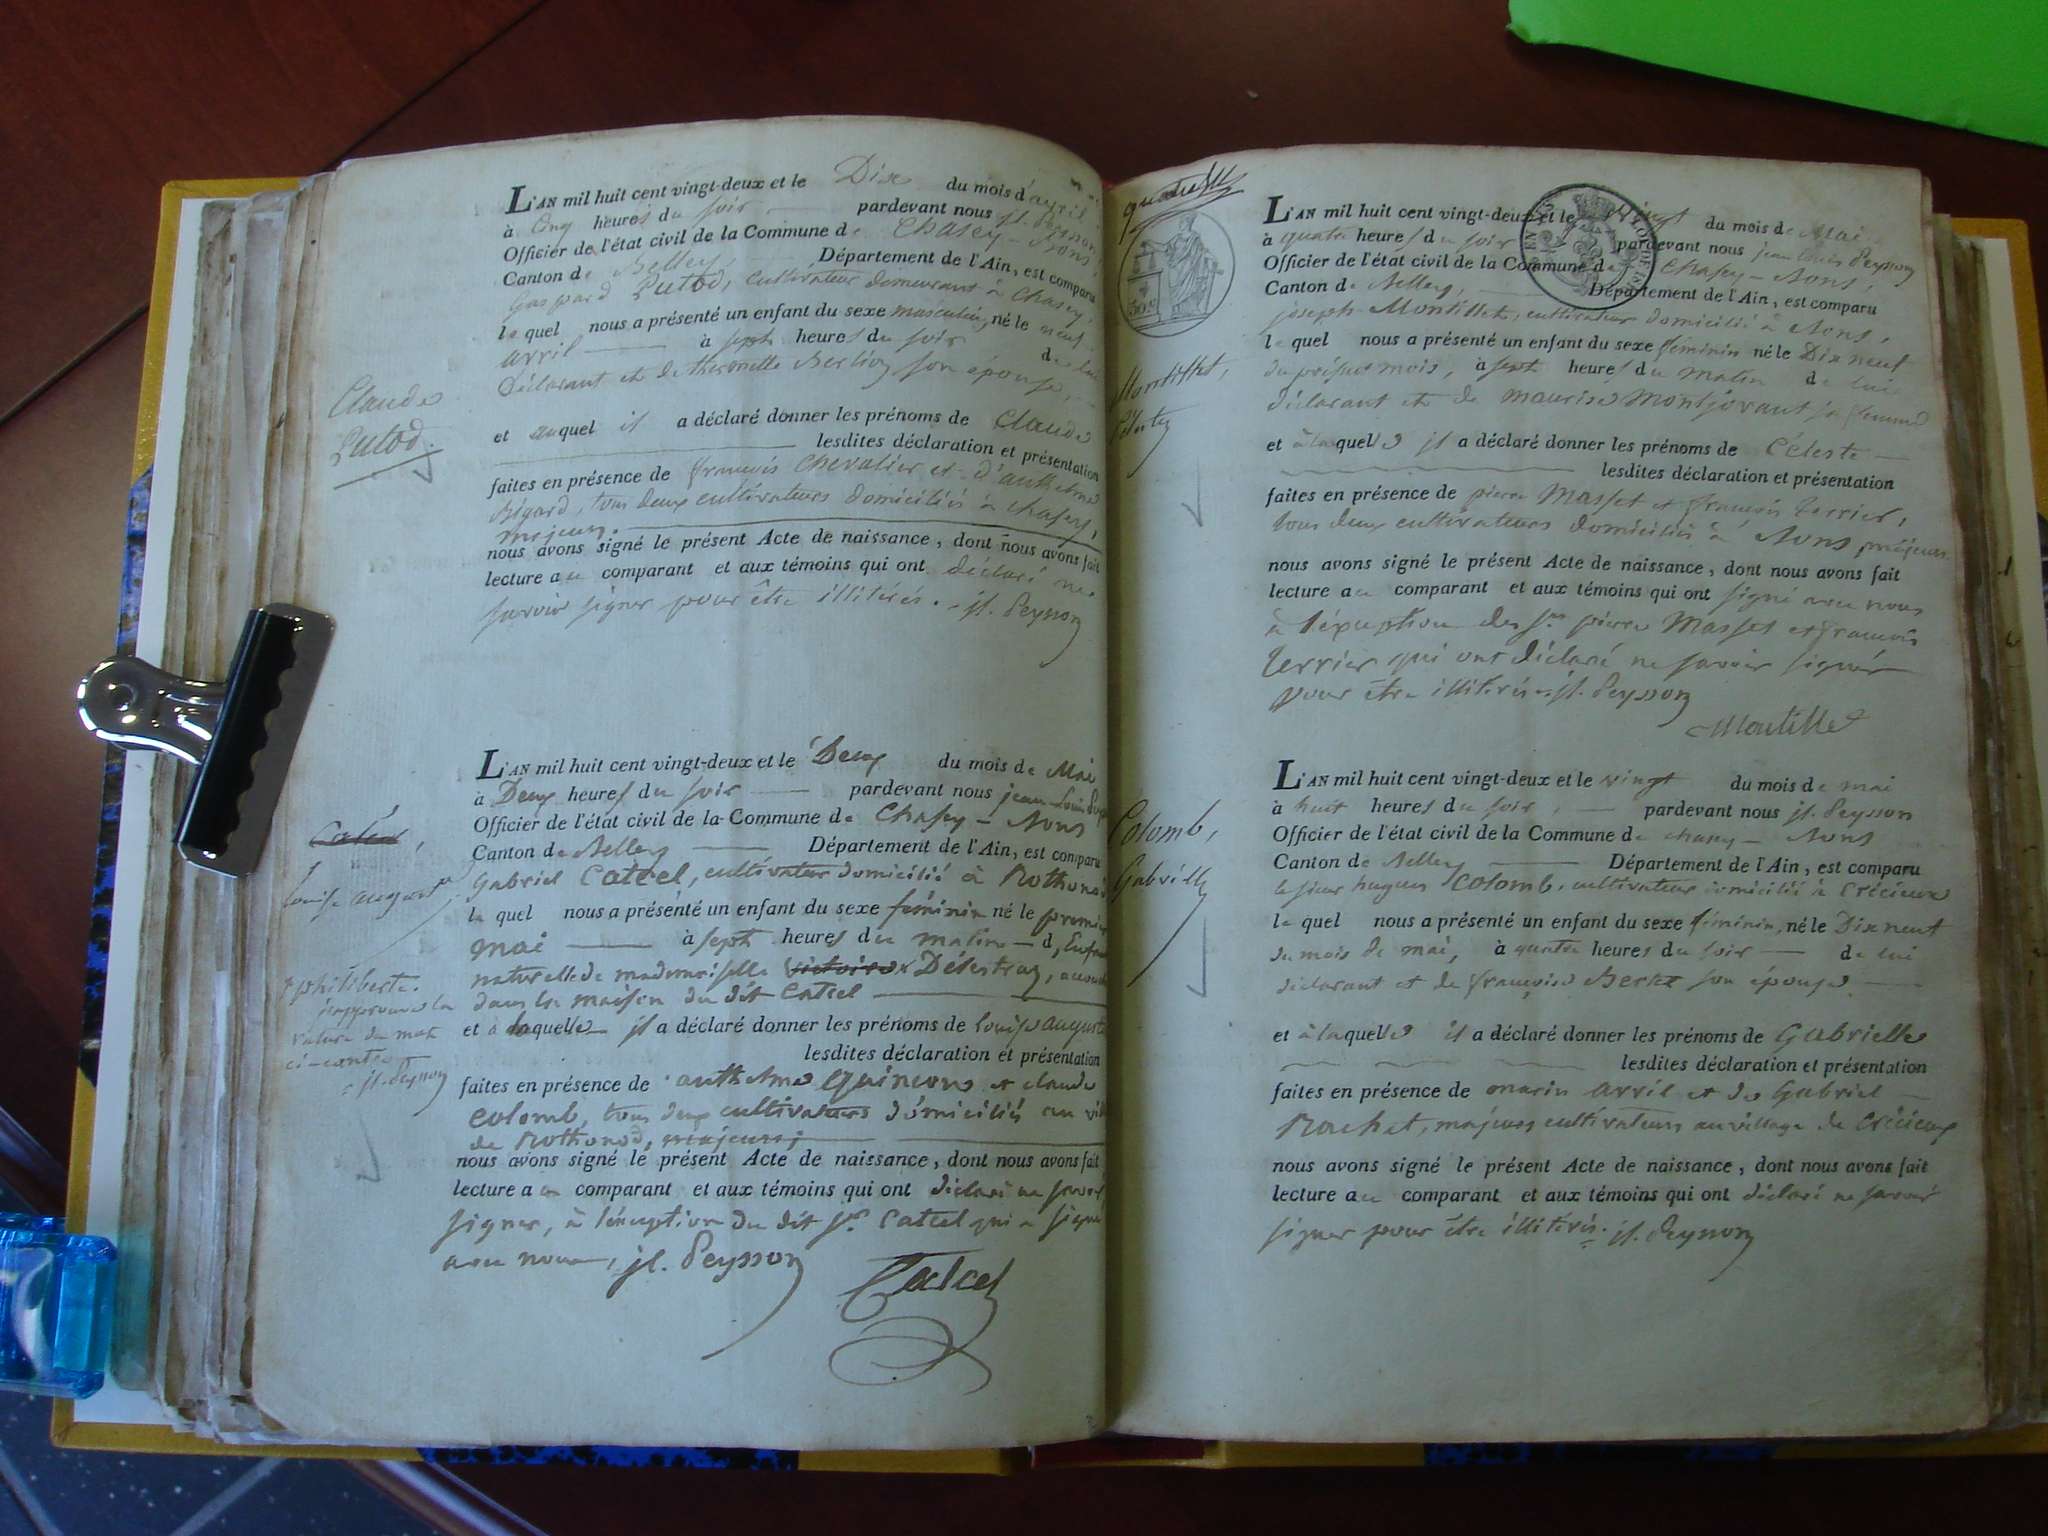 L'AN mil huit cent vingt-deux et le Dix du mois d'avril
à Cinq heures du soir pardevant nous jl. Peysson
Officier de l'état civil de la Commune de Chasey-Bons,
Canton de Belley, Département de l'Ain, est comparu
Gaspard Putod, cultivateur demeurant à Chasey,
lequel nous a présenté un enfant du sexe masculin, né le neuf
avril à sept heures du soir de lui
Déclarant et de Berlioz son épouse,
et auquel il a déclaré donner les prénoms de Claude
lesdites déclaration et présentation
faites en présence de françois Chevalier et d'anthelme
Bigard, tous deux cultivateurs domiciliés à Chasey,
majeurs.
nous avons signé le présent Acte de naissance, dont nous avons fait
lecture au comparant et aux témoins qui ont déclaré ne
savoir signer pour être illitérés. jl. Peysson
Claude
Putod.
L'AN mil huit cent vingt-deux et le Deux du mois de Mai
à Deux heures du soir pardevant nous jean-Louis
Officier de l'état civil de la Commune de Chasey-Bons
Canton de Belley Département de l'Ain, est comparu
Gabriel Catcel, cultivateur domicilié à Rothonod
lequel nous a présenté un enfant du sexe féminin né le premier
mai à sept heures du matin d, Enfant
naturelle de mademoiselle victoire Délestraz,
dans la maison du dit Catcel
et à laquelle jl a déclaré donner les prénoms de louise auguste
lesdites déclaration et présentation
faites en présence de anthelme Guincon et claude
Colomb, tous deux cultivateurs domiciliés au
de Rothonod, majeurs;
nous avons signé le présent Acte de naissance, dont nous avons fait
lecture au comparant et aux témoins qui ont déclaré ne savoir
signer, à l'éxception du dit Sr. Catcel qui a signé
avec nous, jl. Peysson
Catcel
louise august
philiberte.
ci-contre
jl. Peysson
quatre
L'AN mil huit cent vingt-deux et le vingt du mois de Mai
à quatre heures du soir pardevant nous jean louis Peysson
Officier de l'état civil de la Commune de Chasey-Bons,
Canton de Belley, Département de l'Ain, est comparu
joseph Montillet, cultivateur domicilié à Bons,
lequel nous a présenté un enfant du sexe féminin né le Dix neuf
du présent mois, à sept heures du matin de lui
déclarant et de maurise Montjovant sa femme
et à laquelle jl a déclaré donner les prénoms de Céleste
lesdites déclaration et présentation
faites en présence de pierre Masset et françois terrier,
tous deux cultivateurs domiciliés à Bons, majeurs
nous avons signé le présent Acte de naissance, dont nous avons fait
lecture au comparant et aux témoins qui ont signé avec nous
à l'éxception des Srs pierre Masset et françois
terrier qui ont déclaré ne savoir signer
pour être illitérés. jl. Peysson
Montillet
Montillet,
L'AN mil huit cent vingt-deux et le vingt du mois de mai
à huit heures du soir, pardevant nous jl. Peysson
Officier de l'état civil de la Commune de chasey-Bons
Canton de Belley Département de l'Ain, est comparu
le sieur hugues Colomb, cultivateur domicilié à Crécieux
lequel nous a présenté un enfant du sexe féminin, né le Dix neuf
du mois de mai, à quatre heures du soir de lui
déclarant et de françoise Bertet son épouse
et à laquelle il a déclaré donner les prénoms de Gabrielle
lesdites déclaration et présentation
faites en présence de marin avril et de Gabriel
Rachet, majeurs cultivateurs au village de Crécieux
nous avons signé le présent Acte de naissance, dont nous avons fait
lecture au comparant et aux témoins qui ont déclaré ne savoir
signer pour être illitérés. jl. Peysson
Colomb,
Gabrielle